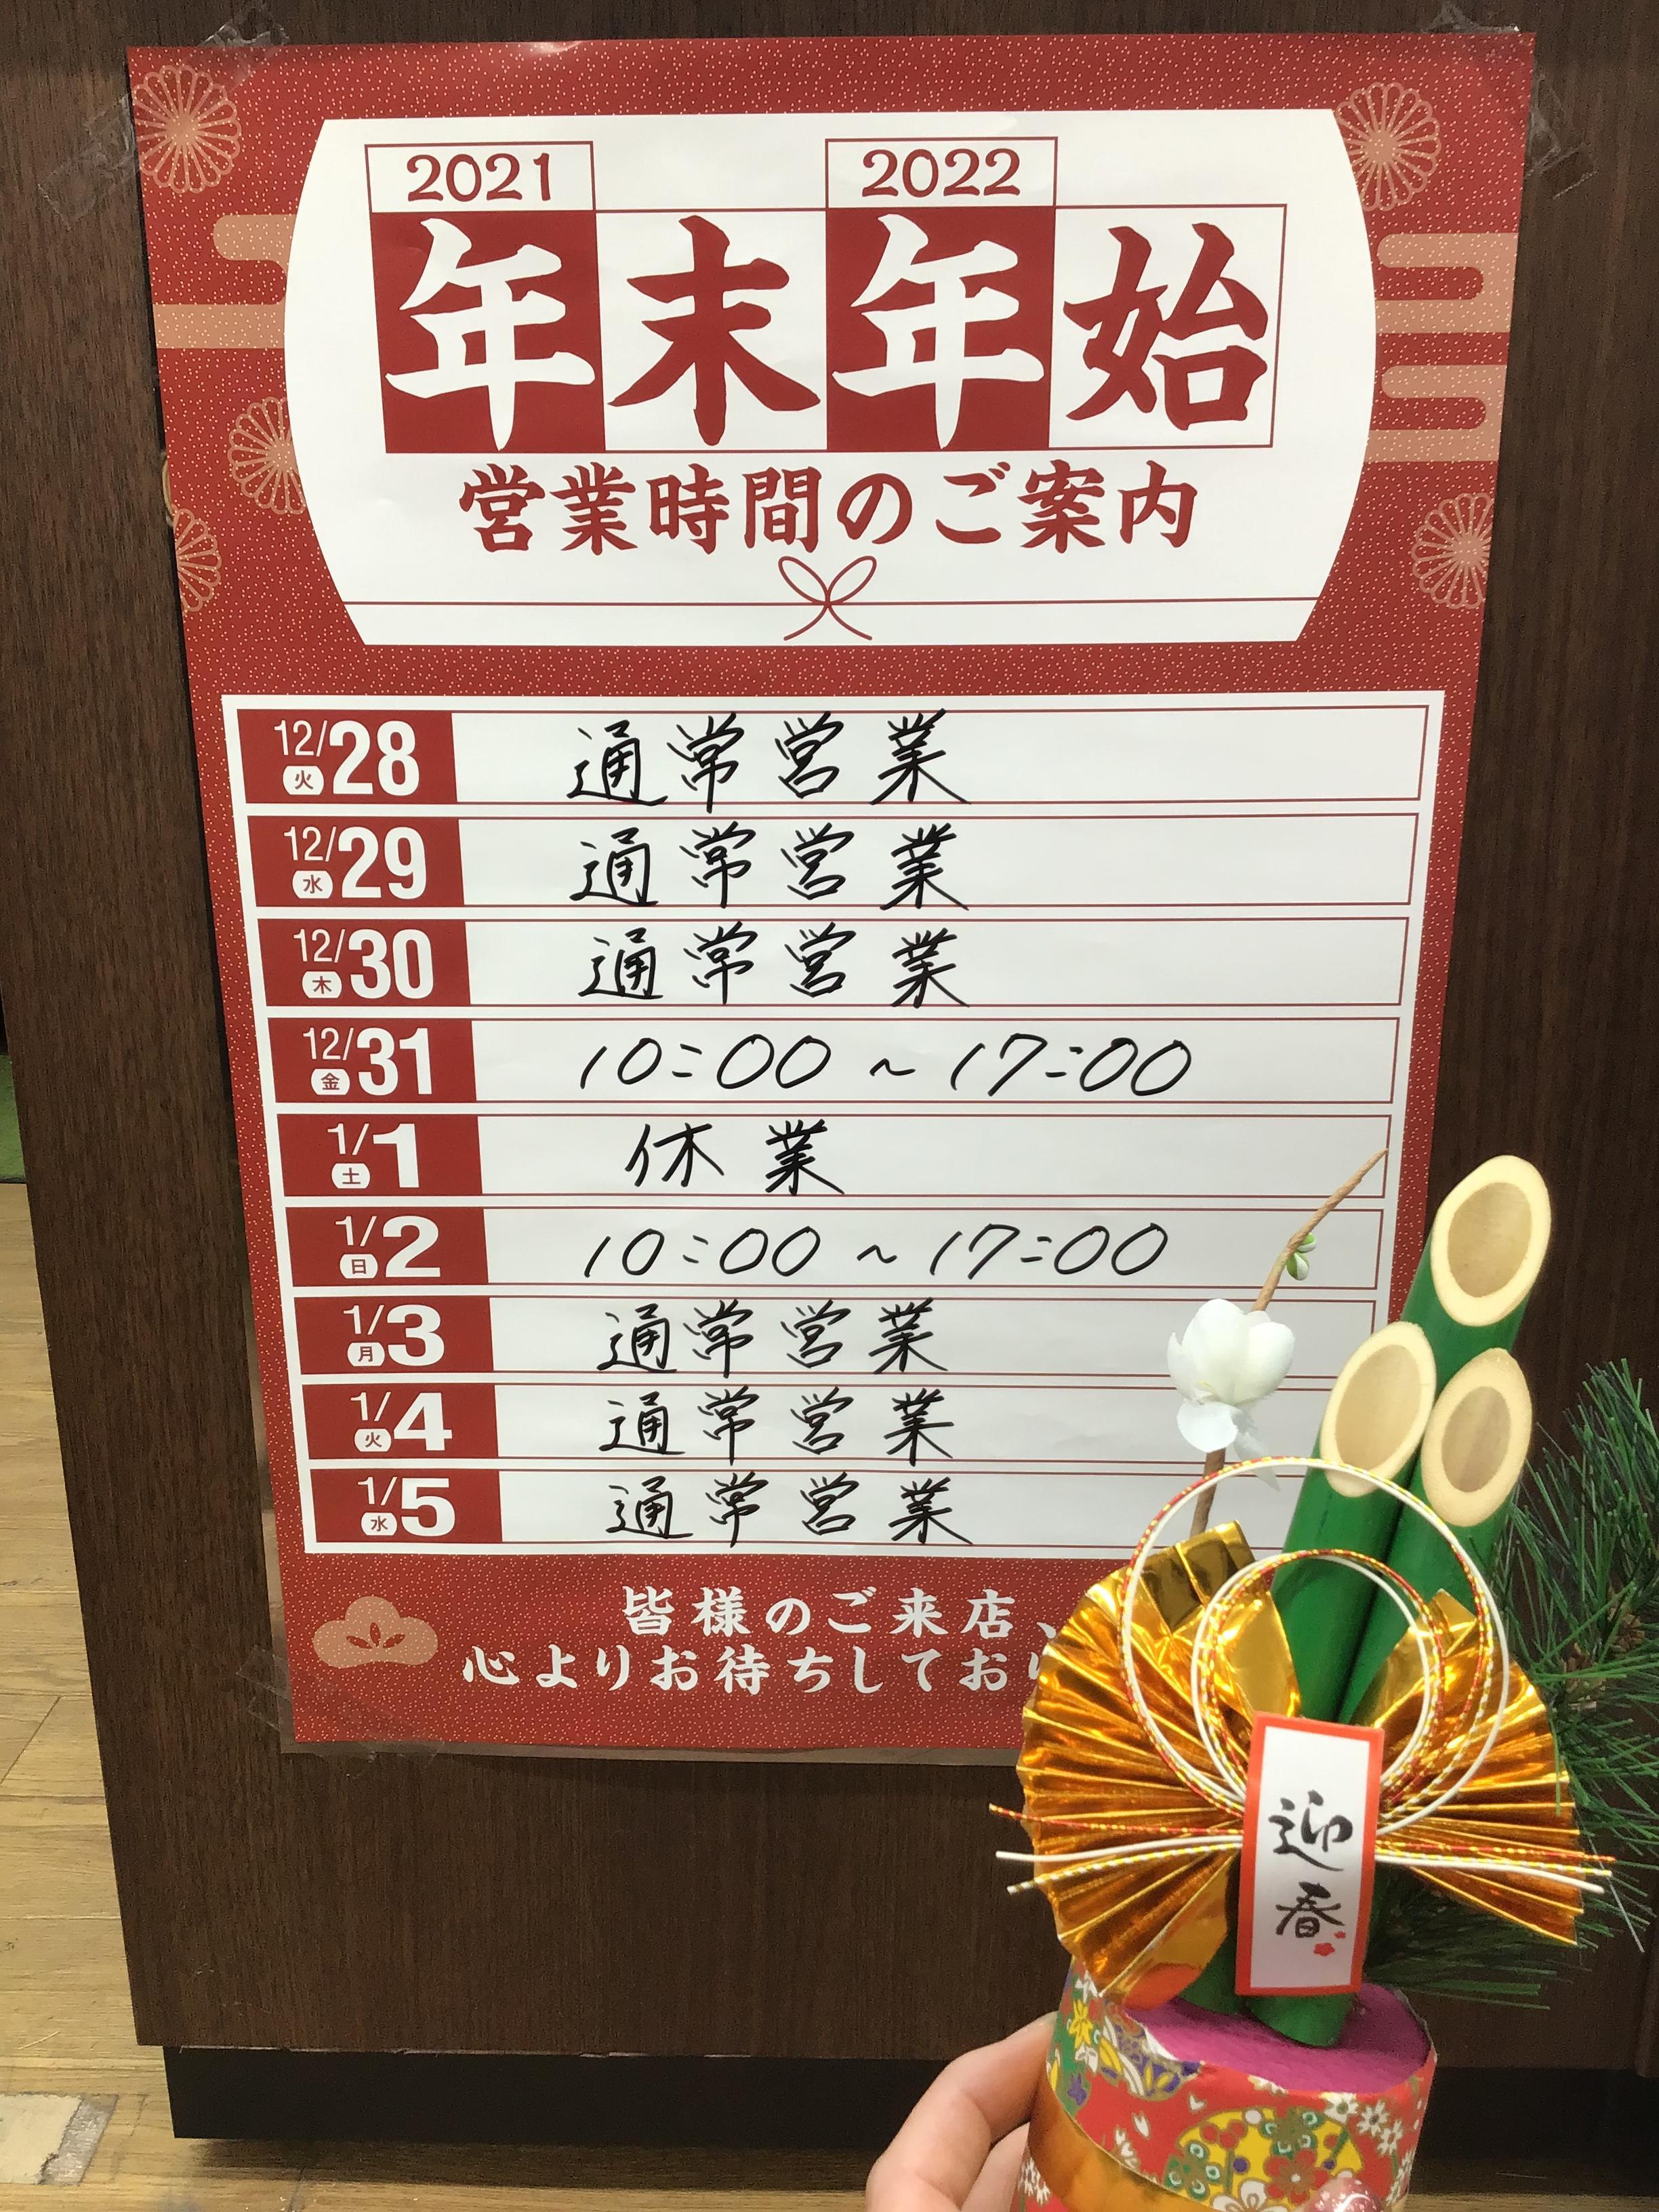 2021 2022
年末年始
営業時間のご案内
12/28 火 通常営業
12/29 水 通常営業
12/30 木 通常営業
12/31 金 10:00～17:00
1/1 土 休業
1/2 日 10:00～17:00
1/3 月 通常営業
1/4 火 通常営業
1/5 水 通常営業
皆様のご来店、
心よりお待ちしており
迎春